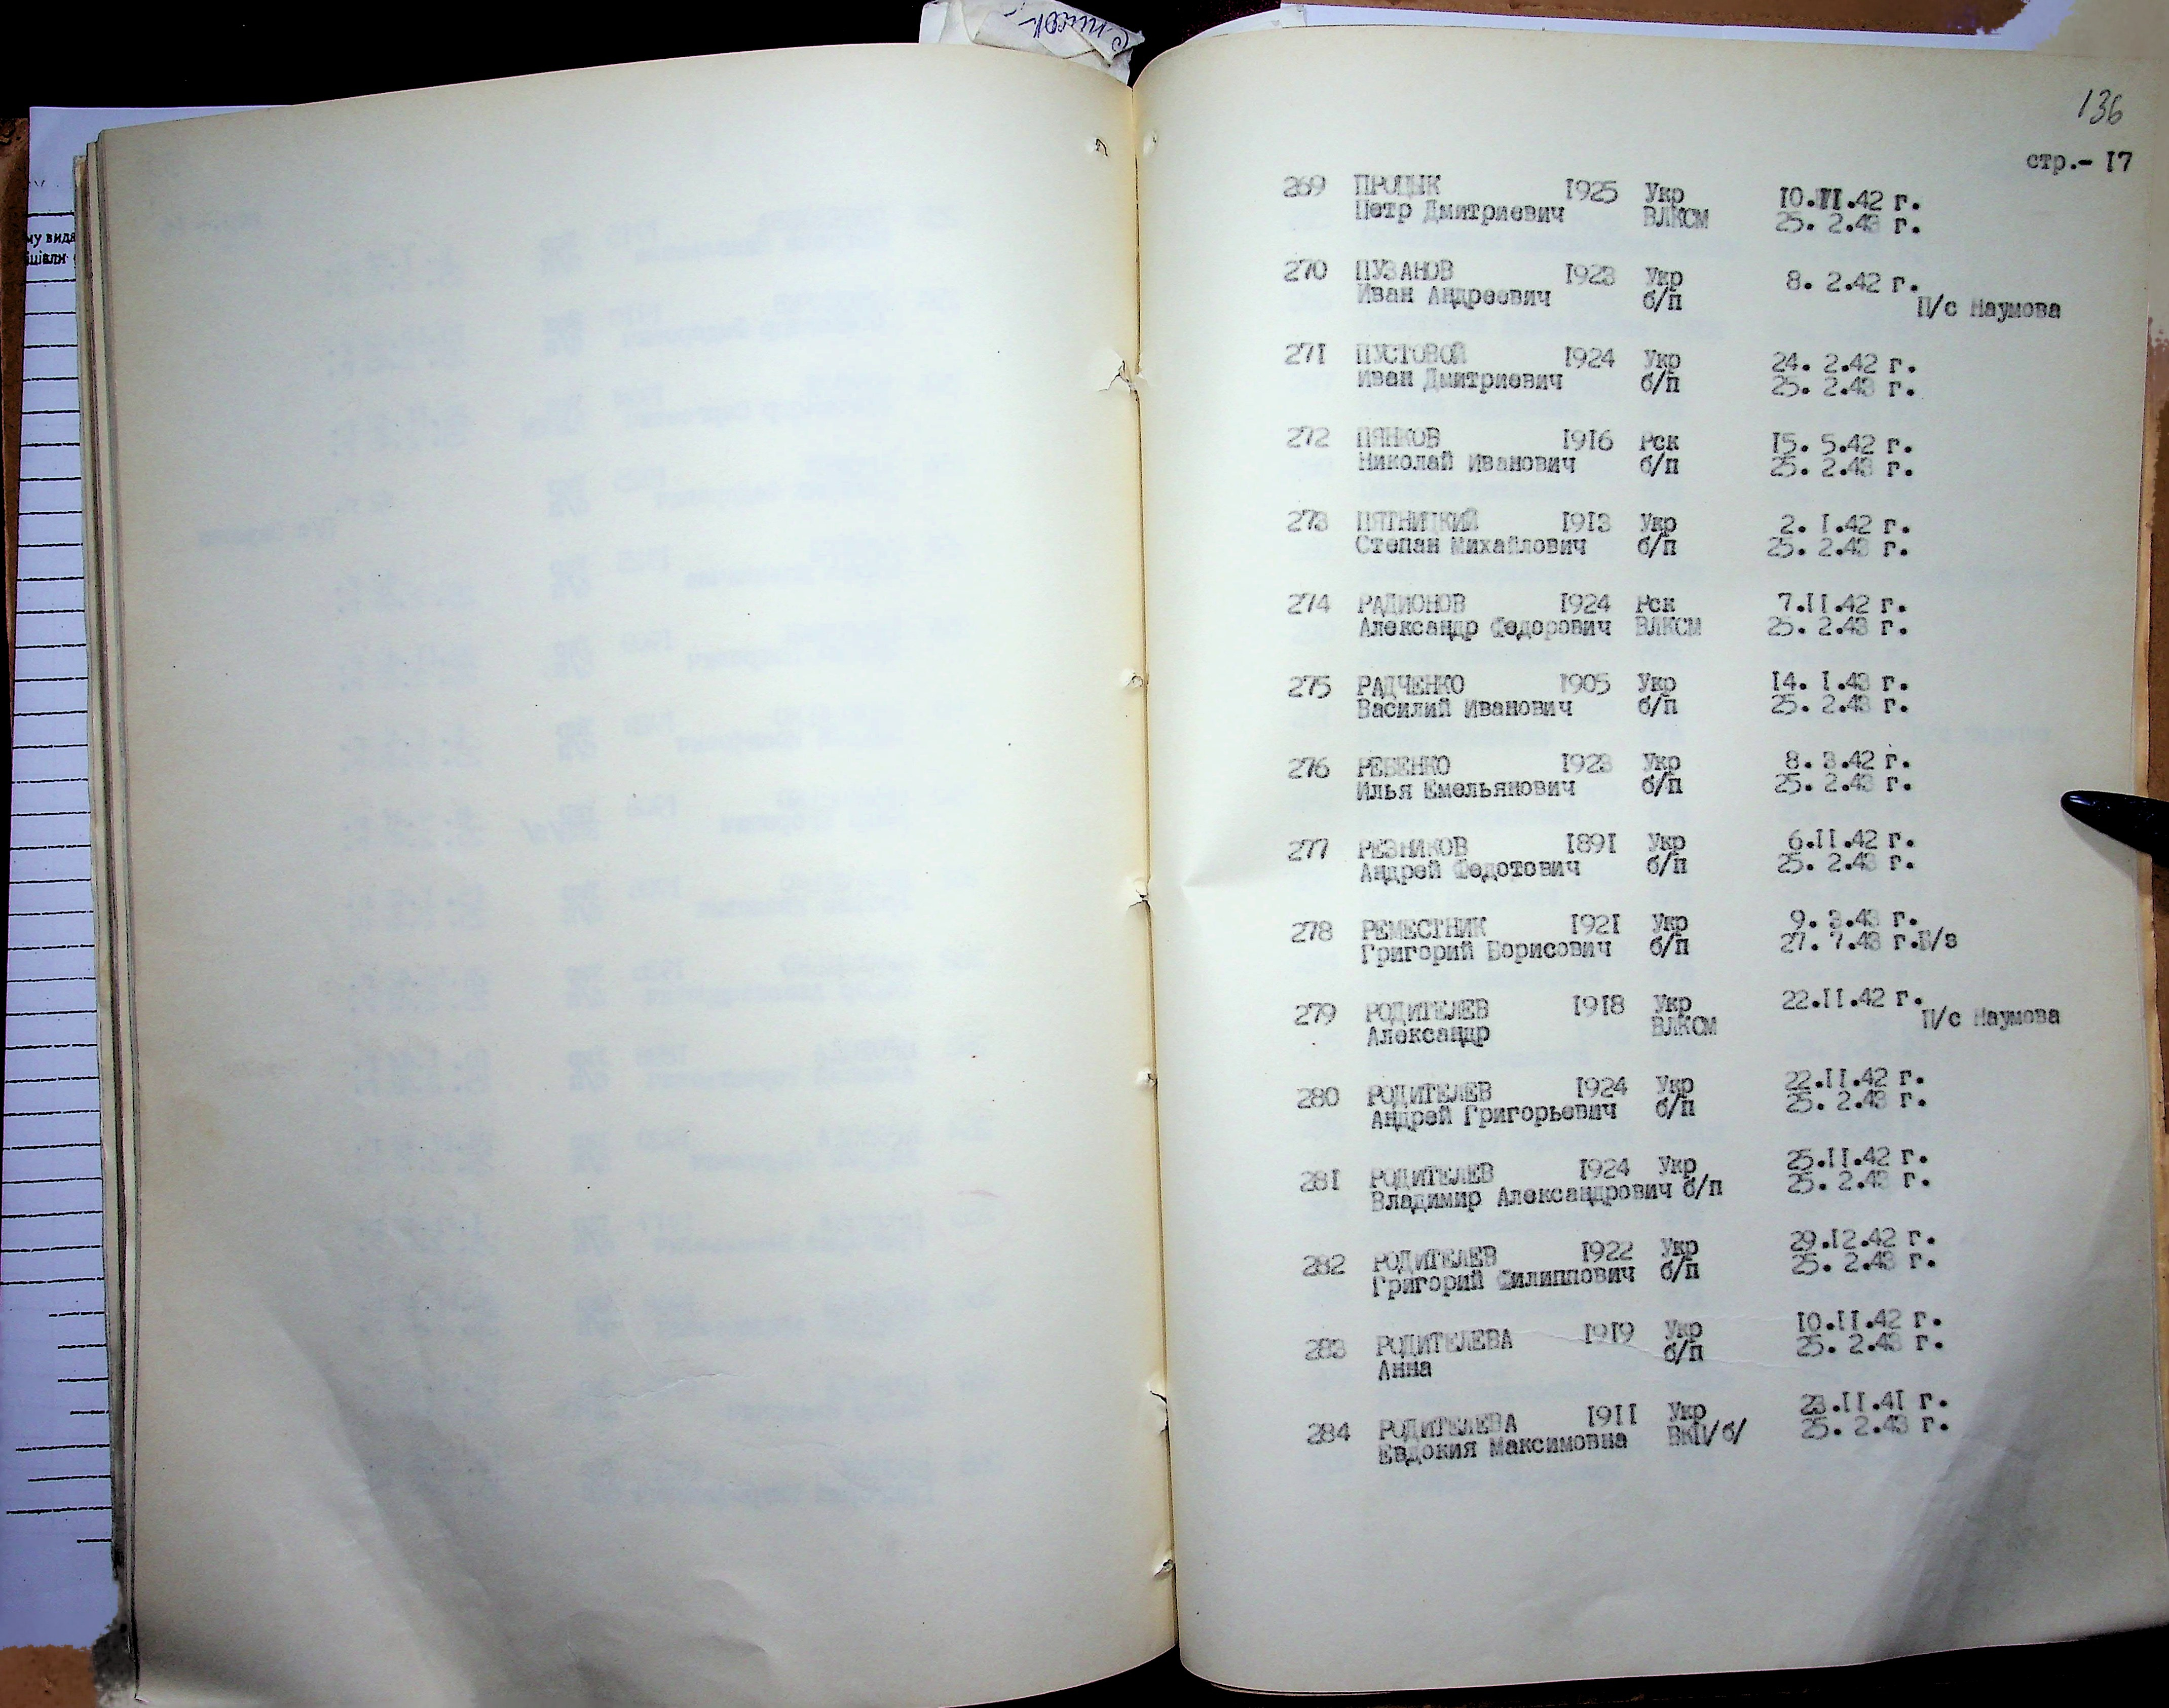 136
стр.- I7
269 ПРОДЫК I925 Укр IO.II.42 г.
Петр Дмитриевич ВЛКСМ 25. 2.43 г.
270 ПУЗАНОВ I923 Укр 8. 2.42 г.
Иван Андреевич б/п П/с Наумова
27I ПУСТОВОЙ I924 Укр 24. 2.42 г.
Иван Дмитриевич б/п 25. 2.43 г.
272 ПЯНКОВ I9I6 Рск I5. 5.42 г.
Николай Иванович б/п 25. 2.43 г.
273 ПЯТНИЦКИЙ I9I3 Укр 2. I.42 г.
Степан Михайлович б/п 25. 2.43 г.
274 РАДИОНОВ I924 Рск 7.II.42 г.
Александр Федорович ВЛКСМ 25. 2.43 г.
275 РАДЧЕНКО I905 Укр I4. I.43 г.
Василий Иванович б/п 25. 2.43 г.
276 РЕБЕНКО I923 Укр 8. 3.42 г.
Илья Емельянович б/п 25. 2.43 г.
277 РЕЗНИКОВ I89I Укр 6.II.42 г.
Андрей Федотович б/п 25. 2.43 г.
278 РЕМЕСТНИК I92I Укр 9. 3.43 г.
Григорий Борисович б/п 27. 7.43 г.
279 РОДИТЕЛЕВ I9I8 Укр 22.II.42 г.
Александр ВЛКСМ П/с Наумова
280 РОДИТЕЛЕВ I924 Укр 22.II.42 г.
Андрей Григорьевич б/п 25. 2.43 г.
28I РОДИТЕЛЕВ I924 Укр 25.II.42 г.
Владимир Александрович б/п 25. 2.43 г.
282 РОДИТЕЛЕВ I922 Укр 29.I2.42 г.
Григорий Филиппович б/п 25. 2.43 г.
283 РОДИТЕЛЕВА I9I9 Укр IO.II.42 г.
Анна б/п 25. 2.43 г.
284 РОДИТЕЛЕВА I9II Укр 23.II.4I г.
Евдокия Максимовна ВКП/б/ 25. 2.43 г.